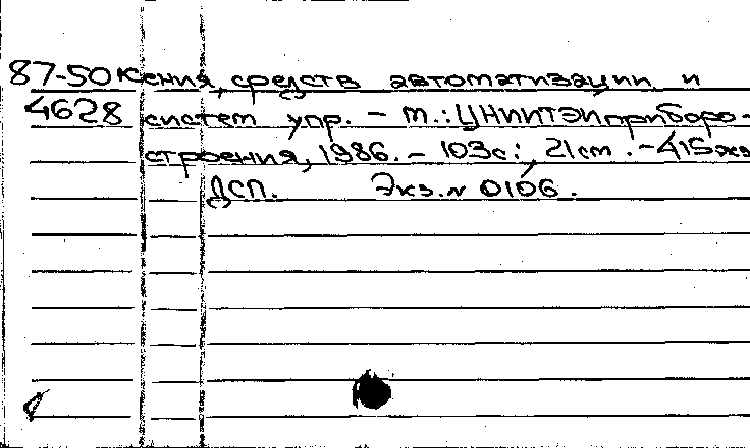 87-50 кения, средств автоматизации и
4628 систем упр. – М.: ЦНИИТЭИприборо-
строения, 1986. – 103с.; 21см. – 415экз
ДСП. Экз. № 0106.